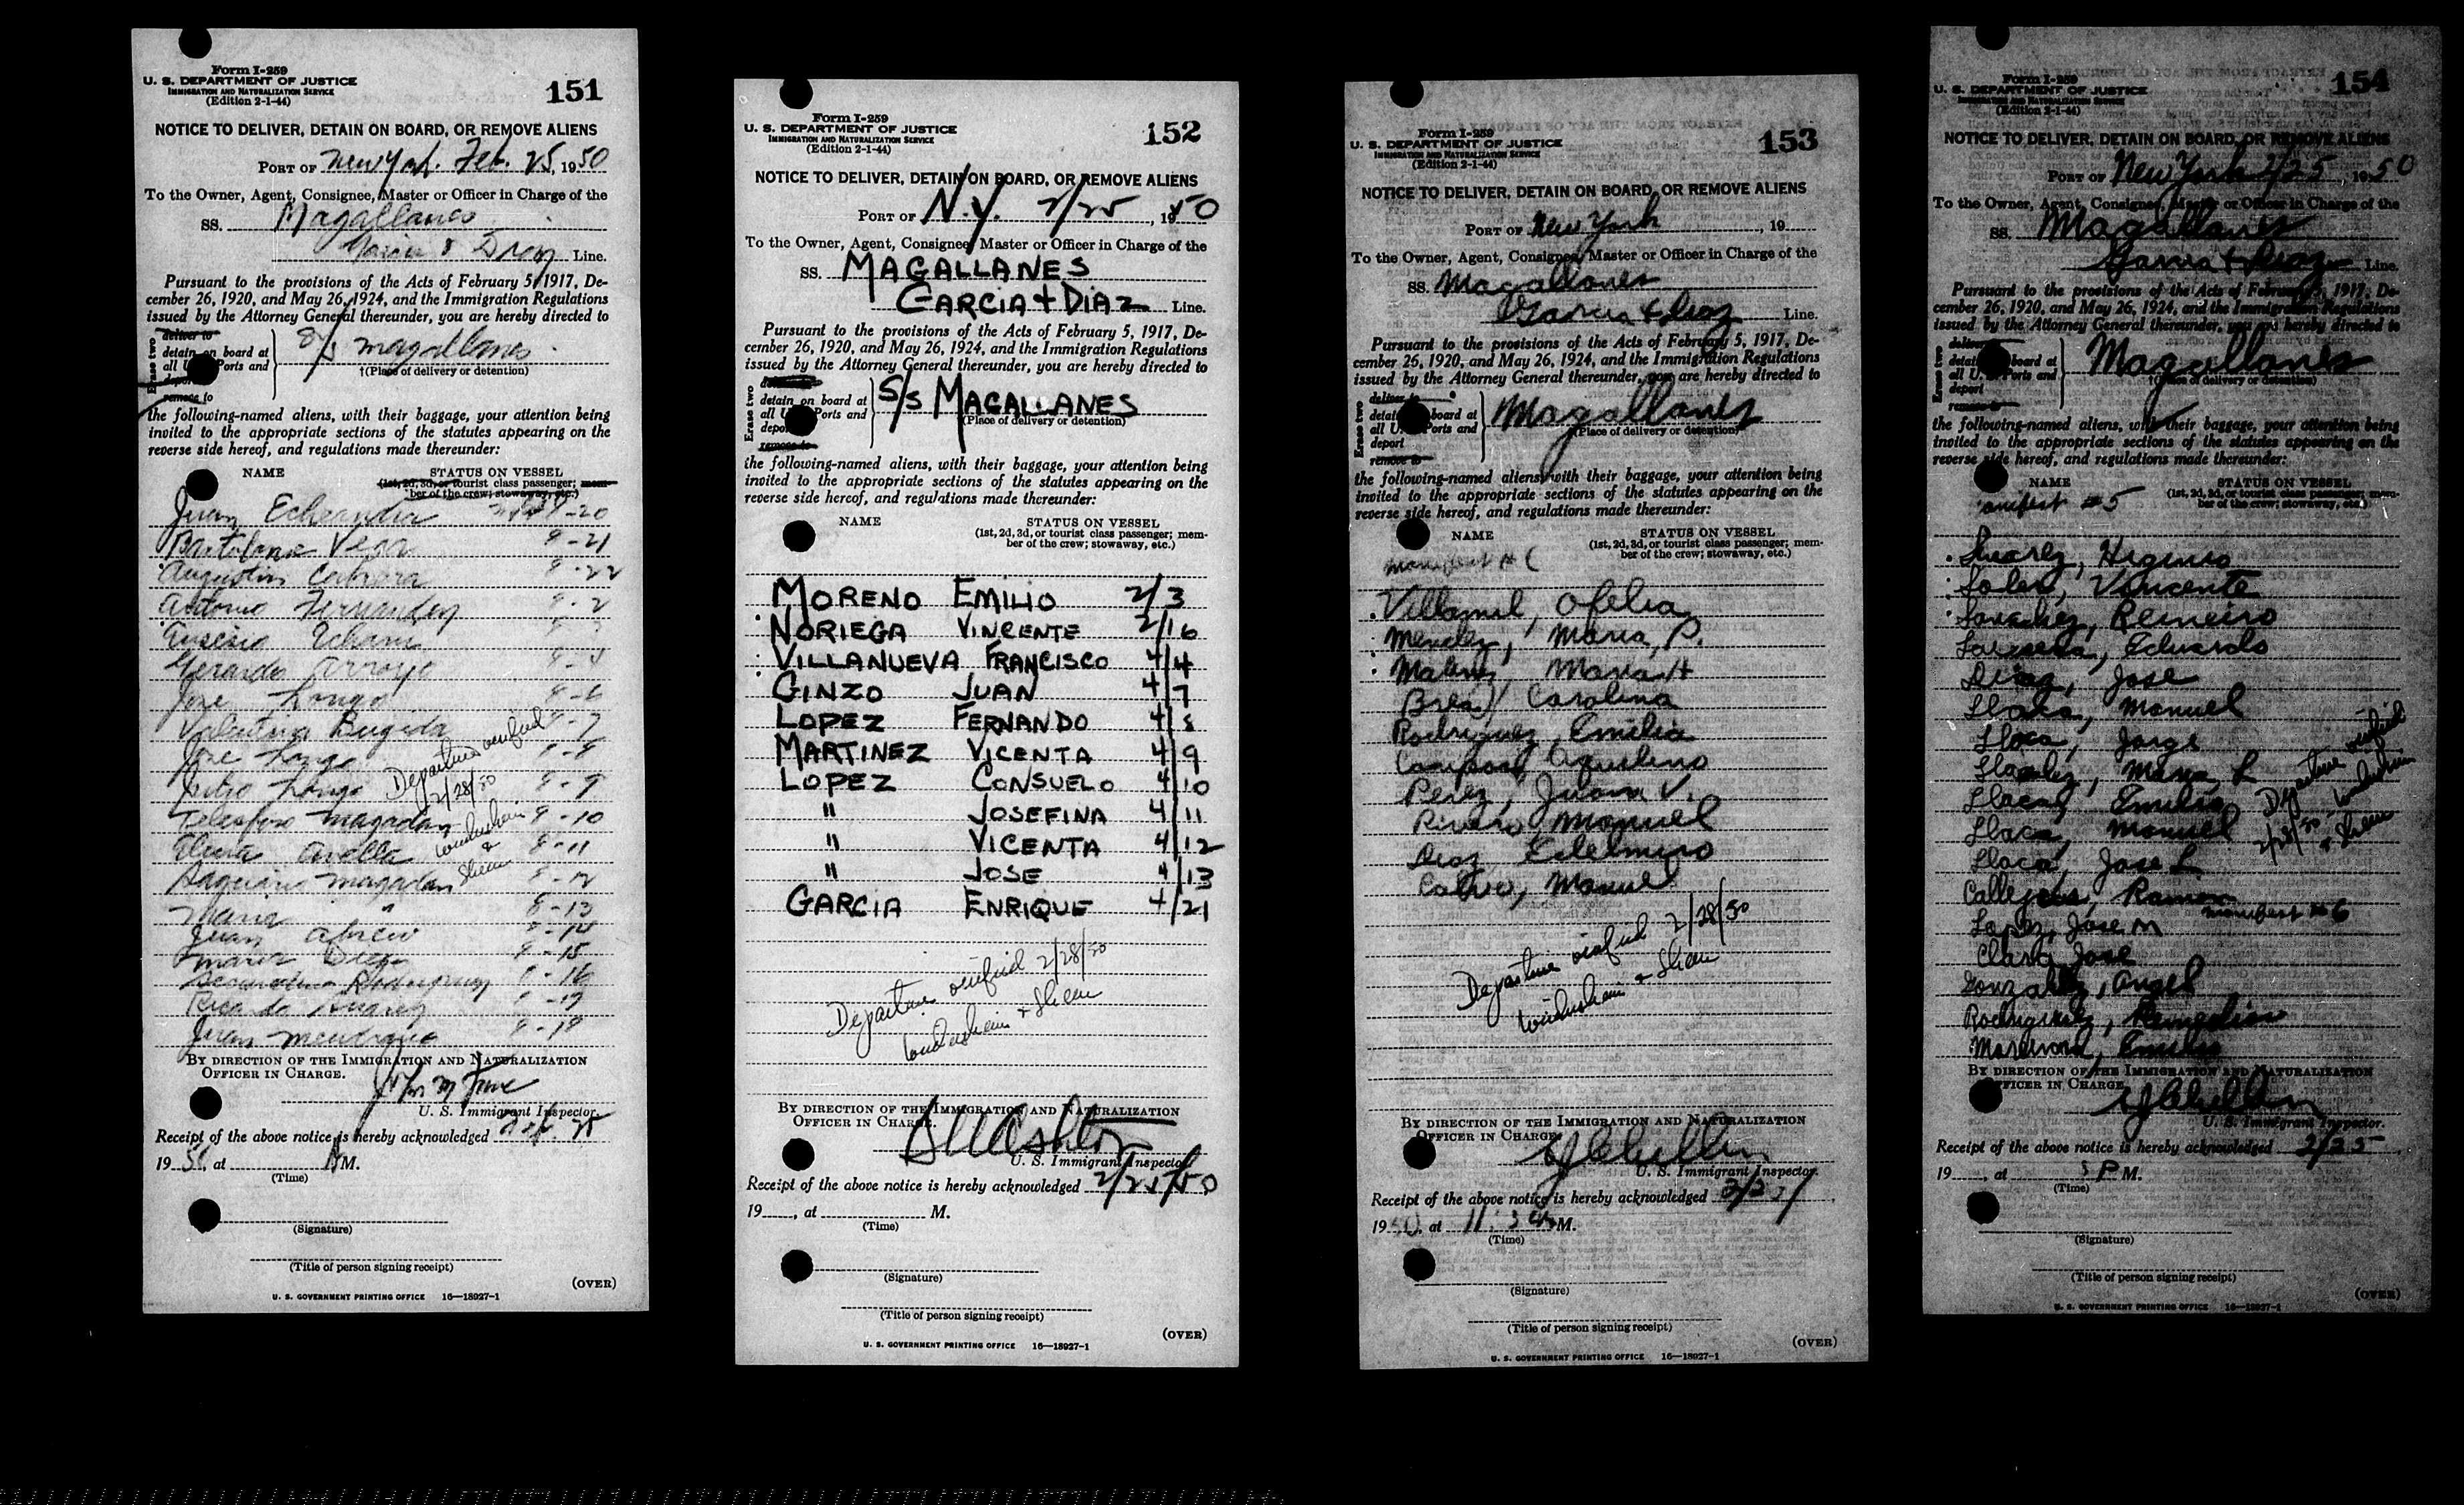 Form I-259
U. S. DEPARTMENT OF JUSTICE
IMMIGRATION AND NATURALIZATION SERVICE
(Edition 2-1-44)
151
NOTICE TO DELIVER, DETAIN ON BOARD, OR REMOVE ALIENS
PORT OF New York. Feb. 25, 1950
To the Owner, Agent, Consignee, Master or Officer in Charge of the
SS. Magallanes
Garcia & Diaz Line.
Pursuant to the provisions of the Acts of February 5, 1917, De-
cember 26, 1920, and May 26, 1924, and the Immigration Regulations
issued by the Attorney General thereunder, you are hereby directed to
Erase two
deliver to
detain on board at
all U. Ports and
deport
remove to
S/S Magallanes
†(Place of delivery or detention)
the following-named aliens, with their baggage, your attention being
invited to the appropriate sections of the statutes appearing on the
reverse side hereof, and regulations made thereunder:
NAME STATUS ON VESSEL
(1st, 2d, 3d, or tourist class passenger; mem-
ber of the crew; stowaway, etc.)
Juan Echeandia 20
Vega 8-21
Augustin Cabrera 8-22
Antonio Fernandez 8-2
Gerardo Arroyo 8-4
Jose Longo 8-6
Bugeda 8-7
Jose Longo 8-8
Julio Longo 8-9
Telesforo Magadan 8-10
Avella 8-11
Magadan 8-12
Maria " 8-13
Juan 8-14
Maria 8-15
Rodriguez 8-16
Ricardo Suarez 8-17
Juan 8-18
Departure verified
2/28/50
&
Sheen
BY DIRECTION OF THE IMMIGRATION AND NATURALIZATION
OFFICER IN CHARGE.
U. S. Immigrant Inspector.
Receipt of the above notice is hereby acknowledged Feb. 25
1950, at M.
(Time)
(Signature)
(Title of person signing receipt)
(OVER)
U. S. GOVERNMENT PRINTING OFFICE 16—18927-1
Form I-259
U. S. DEPARTMENT OF JUSTICE
IMMIGRATION AND NATURALIZATION SERVICE
(Edition 2-1-44)
152
NOTICE TO DELIVER, DETAIN ON BOARD, OR REMOVE ALIENS
PORT OF N.Y. 2/25, 1950
To the Owner, Agent, Consignee, Master or Officer in Charge of the
SS. MAGALLANES
GARCIA + DIAZ Line.
Pursuant to the provisions of the Acts of February 5, 1917, De-
cember 26, 1920, and May 26, 1924, and the Immigration Regulations
issued by the Attorney General thereunder, you are hereby directed to
Erase two
detain on board at
all U. Ports and
depo
remove to
S/S MAGALLANES
(Place of delivery or detention)
the following-named aliens, with their baggage, your attention being
invited to the appropriate sections of the statutes appearing on the
reverse side hereof, and regulations made thereunder:
NAME STATUS ON VESSEL
(1st, 2d, 3d, or tourist class passenger; mem-
ber of the crew; stowaway, etc.)
MORENO EMILIO 2/3
NORIEGA VINCENTE 2/16
VILLANUEVA FRANCISCO 4/4
GINZO JUAN 4/7
LOPEZ FERNANDO 4/8
MARTINEZ VICENTA 4/9
LOPEZ CONSUELO 4/10
" JOSEFINA 4/11
" VICENTA 4/12
" JOSE 4/13
GARCIA ENRIQUE 4/21
Departure verified 2/28/50
+ Sheen
BY DIRECTION OF THE IMMIGRATION AND NATURALIZATION
OFFICER IN CHARGE.
U. S. Immigrant Inspector
Receipt of the above notice is hereby acknowledged 2/25/50
19, at M.
(Time)
(Signature)
(Title of person signing receipt)
(OVER)
U. S. GOVERNMENT PRINTING OFFICE 16—18927-1
Form I-259
U. S. DEPARTMENT OF JUSTICE
IMMIGRATION AND NATURALIZATION SERVICE
(Edition 2-1-44)
153
NOTICE TO DELIVER, DETAIN ON BOARD, OR REMOVE ALIENS
PORT OF New York, 19
To the Owner, Agent, Consignee, Master or Officer in Charge of the
SS. Magallanes
Garcia & Diaz Line.
Pursuant to the provisions of the Acts of February 5, 1917, De-
cember 26, 1920, and May 26, 1924, and the Immigration Regulations
issued by the Attorney General thereunder, you are hereby directed to
Erase two
deliver
detain board at
all U. Ports and
deport
remove to
Magallanes
(Place of delivery or detention)
the following-named aliens, with their baggage, your attention being
invited to the appropriate sections of the statutes appearing on the
reverse side hereof, and regulations made thereunder:
NAME STATUS ON VESSEL
(1st, 2d, 3d, or tourist class passenger; mem-
ber of the crew; stowaway, etc.)
Manifest #
Villamil, Ofelia
Mendez, Maria, P.
Maria H
Brea, Carolina
Rodriguez, Emilia
Aquilino
Perez, Juana V.
Rivero, Manuel
Diaz, Edelmiro
Calvo, Manuel
Departure verified 2/28/50
+ Sheen
BY DIRECTION OF THE IMMIGRATION AND NATURALIZATION
OFFICER IN CHARGE.
U. S. Immigrant Inspector.
Receipt of the above notice is hereby acknowledged
1950, at M.
(Time)
(Signature)
(Title of person signing receipt)
(OVER)
U. S. GOVERNMENT PRINTING OFFICE 16—18927-1
Form I-259
U. S. DEPARTMENT OF JUSTICE
IMMIGRATION AND NATURALIZATION SERVICE
(Edition 2-1-44)
154
NOTICE TO DELIVER, DETAIN ON BOARD, OR REMOVE ALIENS
PORT OF New York 2/25 1950
To the Owner, Agent, Consignee, Master or Officer in Charge of the
SS. Magallanes
Garcia & Diaz Line.
Pursuant to the provisions of the Acts of February 5, 1917, De-
cember 26, 1920, and May 26, 1924, and the Immigration Regulations
issued by the Attorney General thereunder, you are hereby directed to
Erase two
deliver
detai board at
all U. Ports and
deport
remove to
Magallanes
†(Place of delivery or detention)
the following-named aliens, with their baggage, your attention being
invited to the appropriate sections of the statutes appearing on the
reverse side hereof, and regulations made thereunder:
NAME STATUS ON VESSEL
(1st, 2d, 3d, or tourist class passenger; mem-
ber of the crew; stowaway, etc.)
Manifest #5
Suarez, Higinio
Vincente
Sanchez,
Eduardo
Diaz, Jose
Llaca, Manuel
Llaca, Jorge
Maria L
Llaca, Emilio
Llaca, Manuel
Llaca, Jose L
Ramon
Manifest #6
Lopez, Jose M
Clara, Jose
Gonzalez, Angel
Rodriguez,
Departure verified
2/28/50
+ Sheen
BY DIRECTION OF THE IMMIGRATION AND NATURALIZATION
OFFICER IN CHARGE
U. S. Immigrant Inspector.
Receipt of the above notice is hereby acknowledged 2/25
19, at 3 P M.
(Time)
(Signature)
(Title of person signing receipt)
(OVER)
U. S. GOVERNMENT PRINTING OFFICE 16—18927-1